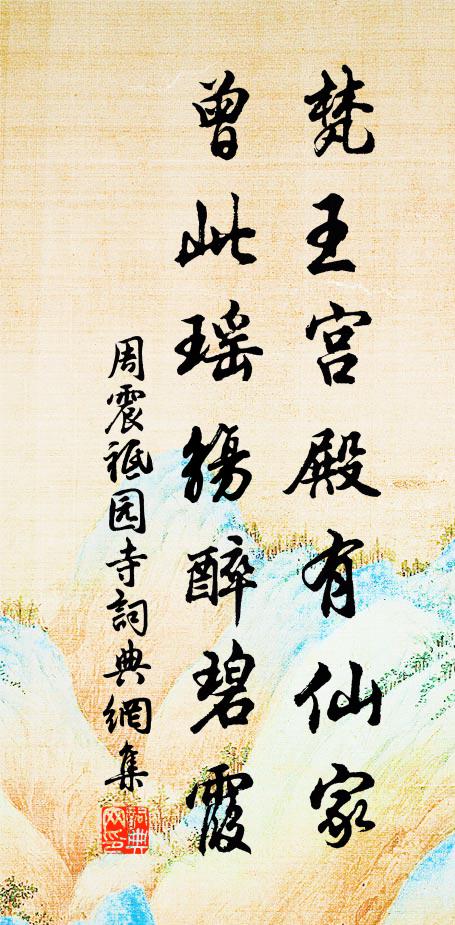 梵王宫殿有仙家
曾此瑶觴醉碧霞
周震祗园寺詞典網集